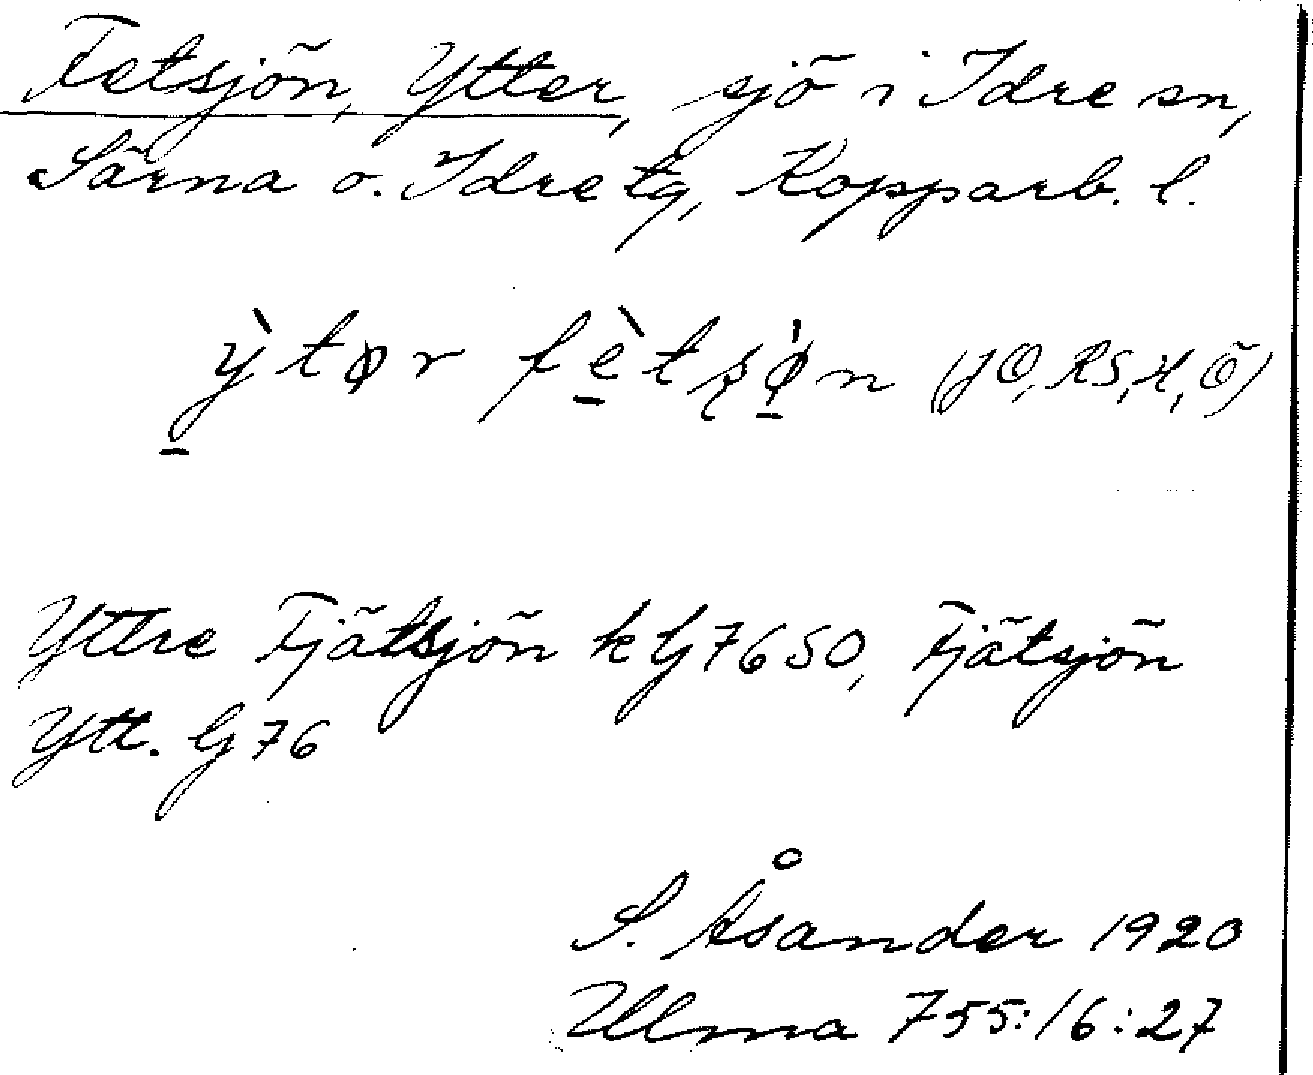 Fetsjön, Ytter, sjö i Idre sn,
Särna o. Idre tg, Kopparb. l.
ỳ̠tør fè̠tʂø̠̍n (JO, RS, H, Ö)
Yttre Fjätsjön k G7650, Fjätsjön
Ytt. G 76
S. Åsander 1920
Ulma 755:16:27